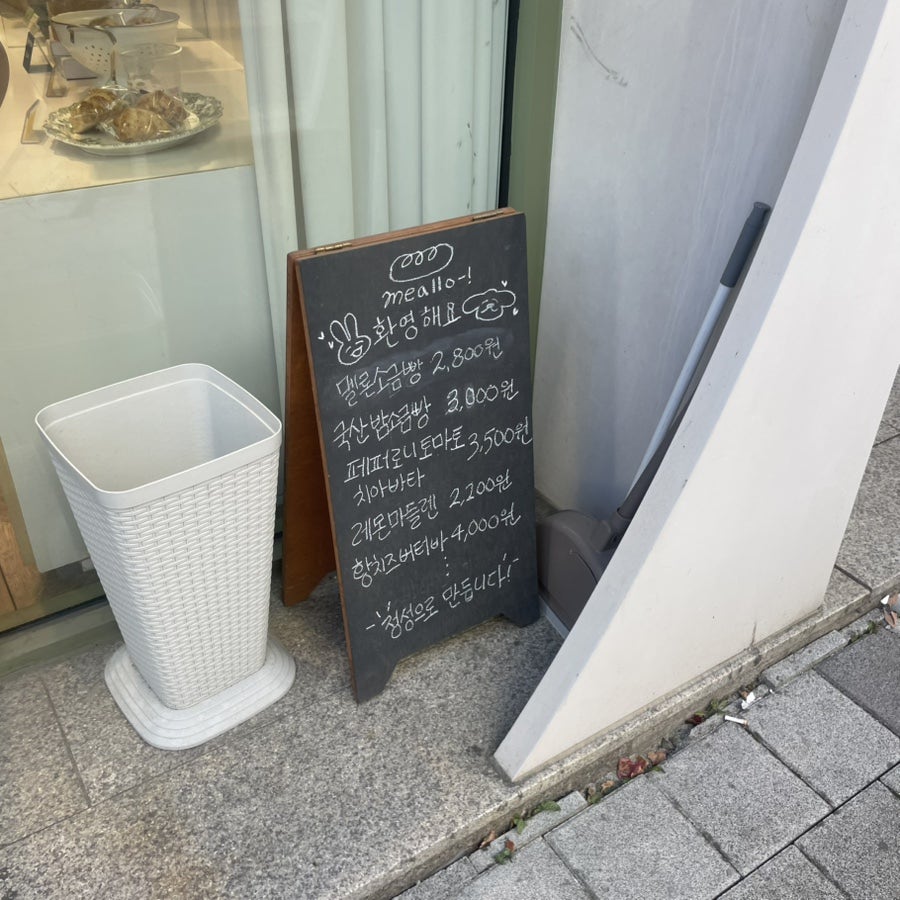 meallo~!
환영해요
멜론소금빵 2,800원
국산밤소금빵 3,000원
페퍼로니토마토 3,500원
치아바타
레몬마들렌 2,200원
황치즈버터바 4,000원
정성으로 만듭니다!